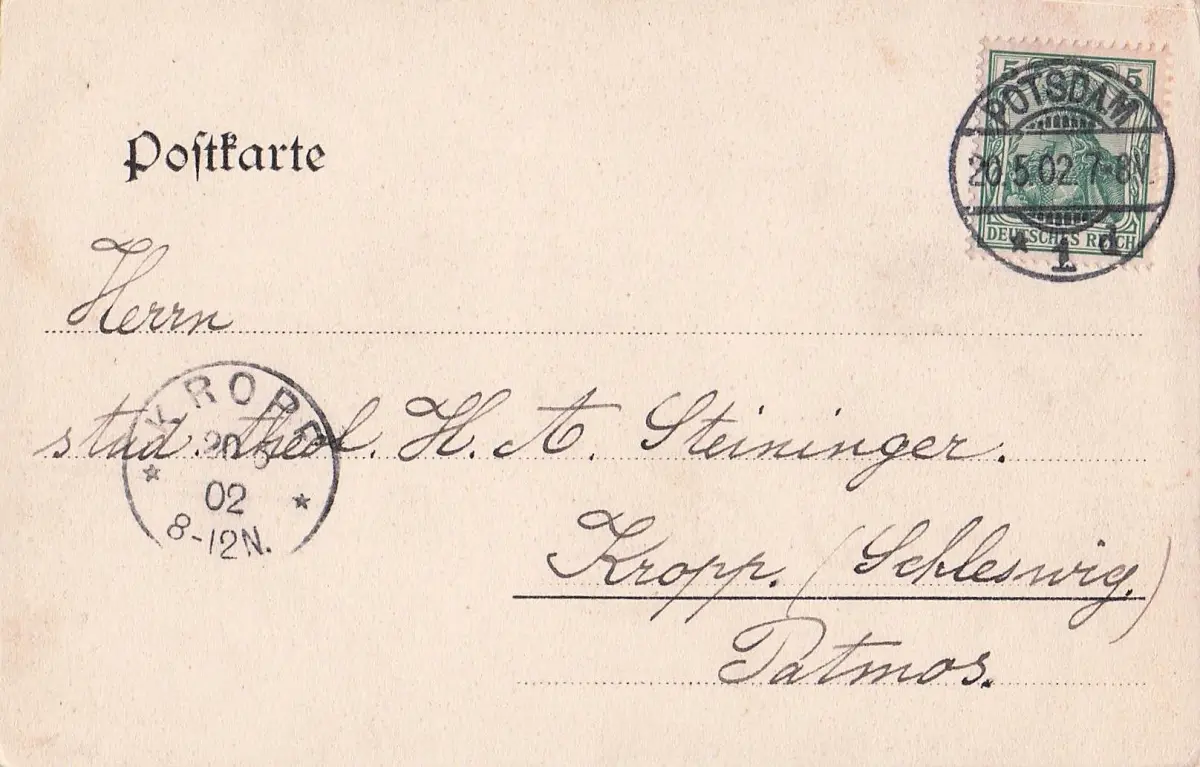 5 5
POTSDAM
20.5.02.7-8V.
DEUTSCHES REICH
* 1 d
Poſtkarte
Herrn
KROPP
stud. theol. H. A. Steininger.
20 5
02
8-12N.
Kropp. (Schleswig.)
Patmos.